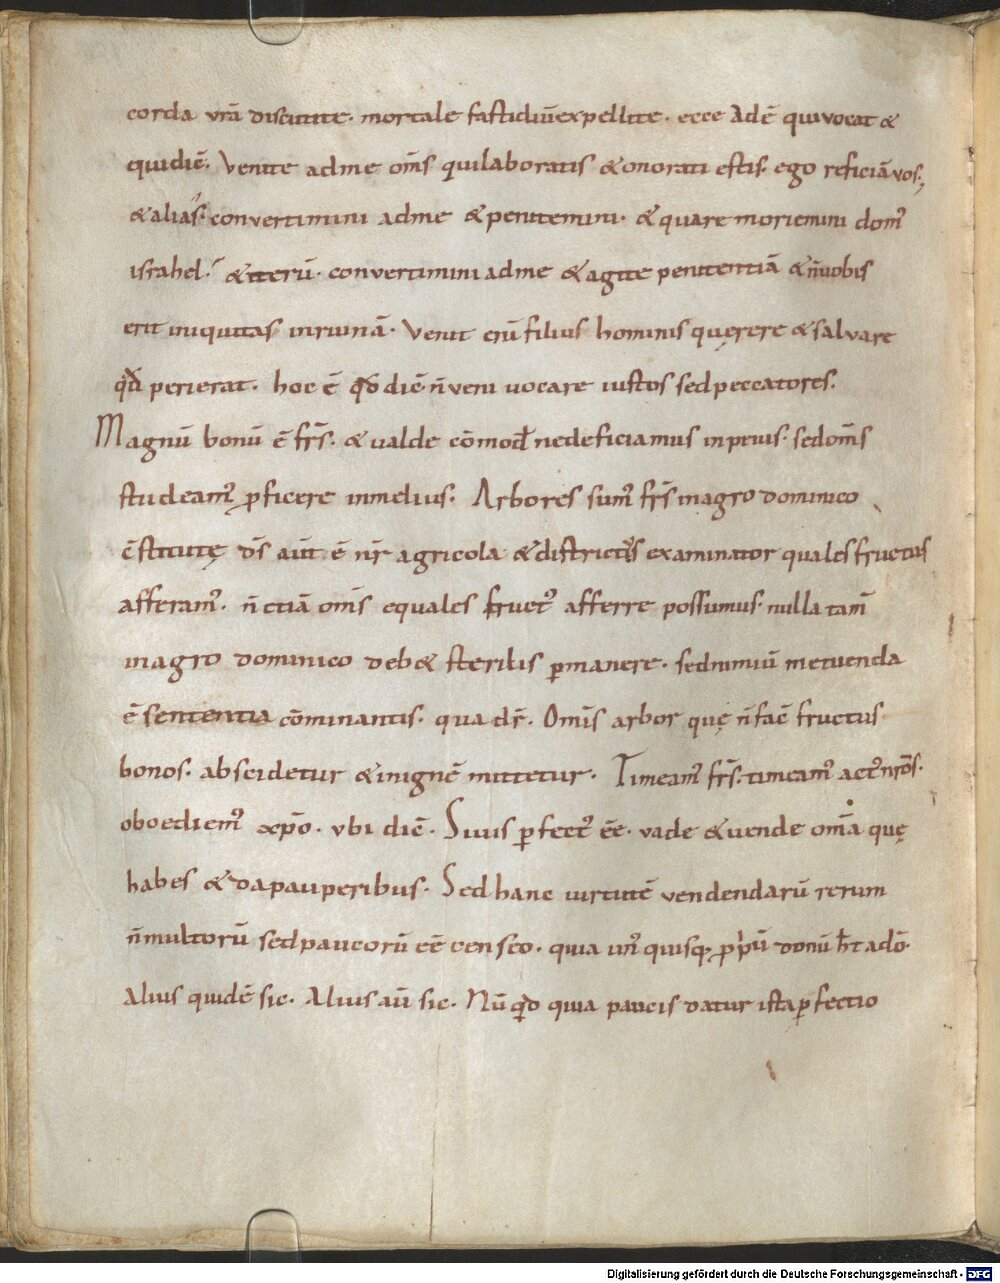 corda vr̄a discutite. mortale fastidiū expellite. ecce Adē qui vocat &
qui diē. Venite ad me om̄s qui laboratis & onorati estis. ego reficiā vos.
& alias. convertimini ad me & penitemini. & quare moriemini dom᾿
israhel? & iterū. convertimini ad me & agite penitentiā & n̄ vobis
erit iniquitas in ruinā. Venit enī filius hominis quęrere & salvare
qđ perierat. hoc ē qđ diē n̄ veni vocare iustos sed peccatores.
Magnū bonū ē fr̄s. & valde cōmod̄ ne deficiamus in peius. sed om̄s
studeam᾿ ꝓficere in melius. Arbores sum᾿ fr̄s in agro dominico
c̄stitutę d̄s aut̄ ē nr̄ agricola & districtus examinator quales fructus
afferam᾿. n̄ etiā om̄s equales fruct᾿ afferre possumus. nulla tam̄
in agro dominico deb& sterilis ꝑmanere. sed nimiū metuenda
ē sententia cōminantis. qua dr̄. Omīs arbor quę n̄ facē fructus
bonos. abscidetur & in ignē mittetur. Timeam᾿ fr̄s. timeam᾿ act᾿ nr̄os.
oboediem᾿ xp̄o. vbi diē. Si uis ꝑfect᾿ eē. vade & uende om̄a quę
habes & da pauperibus. Sed hanc uirtutē vendendarū rerum
n̄ multorū sed paucorū eē censeo. quia un᾿ quisq; ꝓpiū donū h̄t a dō.
Alius quidē sic. Alius aū sic. Nū qđ quia paucis datur ista ꝑfectio
Digitalisierung gefördert durch die Deutsche Forschungsgemeinschaft - DFG